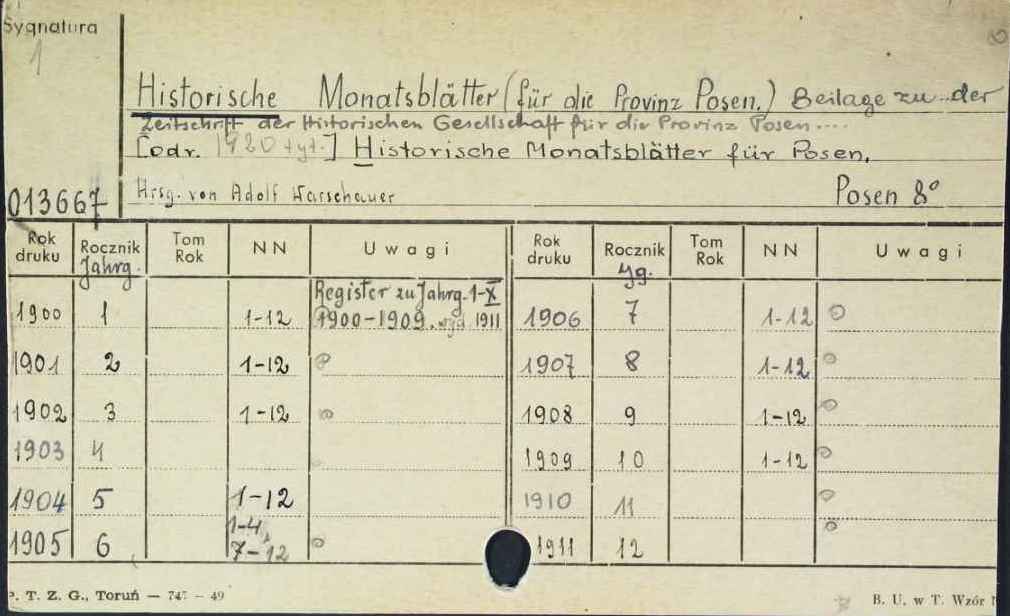 Sygnatura
1
Historische Monatsblätter (für die Provinz Posen.) Beilage zu der
Zeitschrift der Historischen Gesellschaft für die Provinz Posen....
[odr. 1920 tyt.] Historische Monatsblätter für Posen.
Hrsg. von Adolf Warschauer Posen 8°
013667
Rok druku Rocznik Jahrg. Tom Rok NN Uwagi Rok druku Rocznik Jg. Tom Rok NN Uwagi
Register zu Jahrg. 1-X
1900 1 1-12 1900-1909. wyd. 1911 1906 7 1-12
1901 2 1-12 1907 8 1-12
1902 3 1-12 1908 9 1-12
1903 4 1909 10 1-12
1904 5 1-12 1910 11
1905 6 1-4, 7-12 1911 12
P. T. Z. G., Toruń — 747 - 49 B. U. w T. Wzór